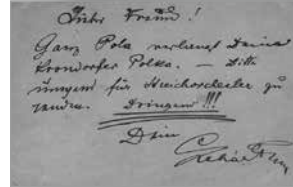 Lieber Freund!
Ganz Pola verlangt Deine
Krondorfer Polka. – Bitte
für Streichorchester zu
senden. Dringend!!!
Dein
Lehár